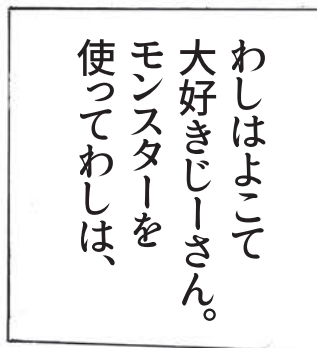 わしはよこて
大好きじーさん。
モンスターを
使ってわしは、